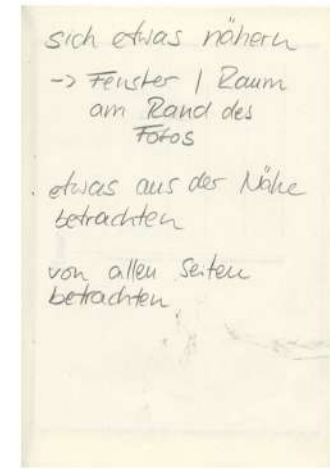 sich etwas nähern
-> Fenster / Raum
am Rand des
Fotos
etwas aus der Nähe
betrachten
von allen Seiten
betrachten